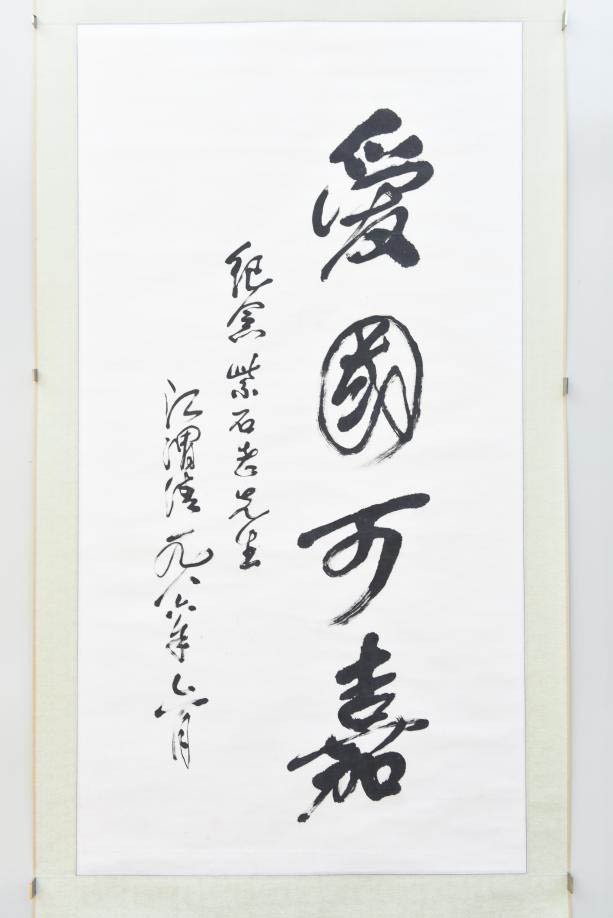 愛國可嘉
纪念紫石老先生
江渭清一九八六年六月